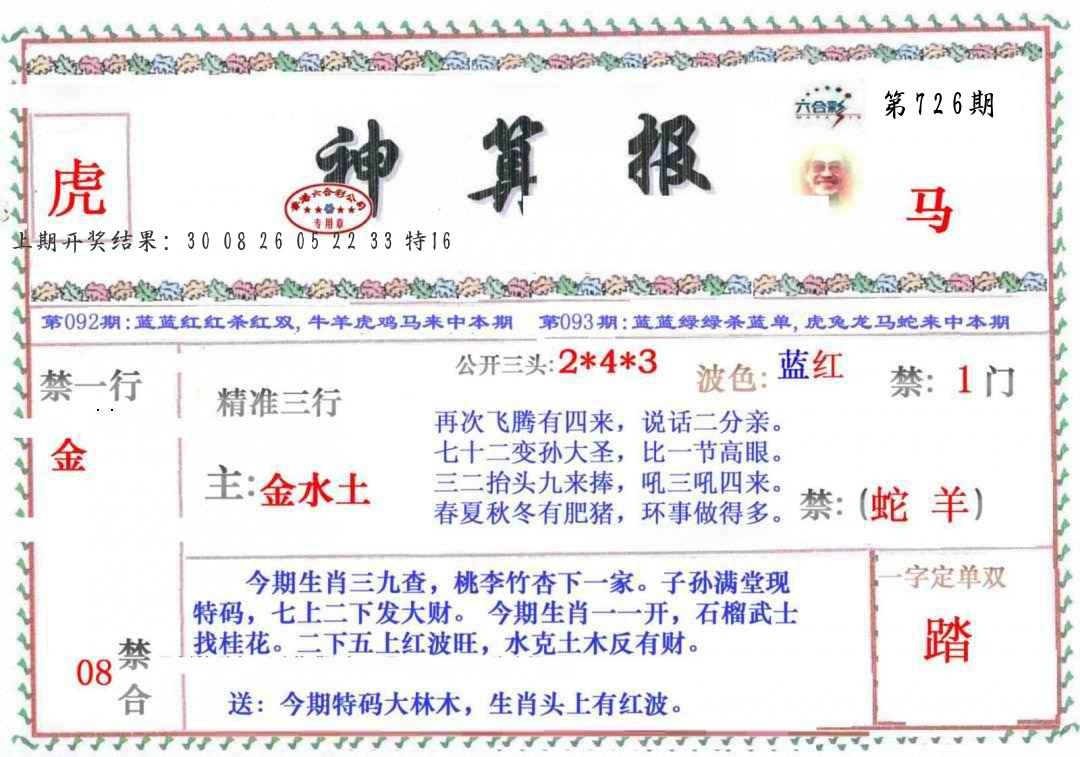 六合彩
第726期
神算报
虎
香港六合彩公司
专用章
马
上期开奖结果: 30 08 26 05 22 33 特16
第092期:蓝蓝红红杀红双,牛羊虎鸡马来中本期 第093期:蓝蓝绿绿杀蓝单,虎兔龙马蛇来中本期
禁一行
金
精准三行
主:金水土
公开三头:2*4*3
波色:蓝红
禁: 1门
再次飞腾有四来，说话二分亲。
七十二变孙大圣，比一节高眼。
三二抬头九来捧，吼三吼四来。
春夏秋冬有肥猪，环事做得多。
禁:(蛇 羊)
今期生肖三九查，桃李竹杏下一家。子孙满堂现
特码，七上二下发大财。 今期生肖一一开，石榴武士
找桂花。二下五上红波旺，水克土木反有财。
送：今期特码大林木，生肖头上有红波。
一字定单双
踏
08
禁
合